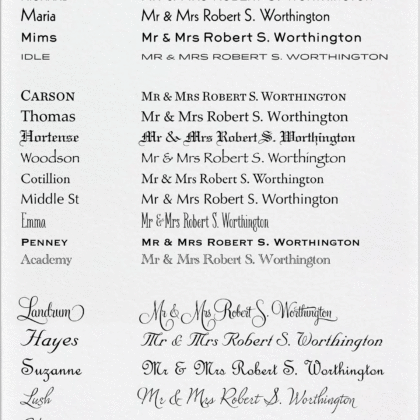 Maria Mr & Mrs Robert S. Worthington
Mims Mr & Mrs Robert S. Worthington
IDLE MR & MRS ROBERT S. WORTHINGTON
CARSON MR & MRS ROBERT S. WORTHINGTON
Thomas Mr & Mrs Robert S. Worthington
Hortense Mr & Mrs Robert S. Worthington
Woodson Mr & Mrs Robert S. Worthington
Cotillion Mr & Mrs Robert S. Worthington
Middle St Mr & Mrs Robert S. Worthington
Emma Mr & Mrs Robert S. Worthington
PENNEY MR & MRS ROBERT S. WORTHINGTON
Academy Mr & Mrs Robert S. Worthington
Landrum Mr & Mrs Robert S. Worthington
Hayes Mr & Mrs Robert S. Worthington
Suzanne Mr & Mrs Robert S. Worthington
Lush Mr & Mrs Robert S. Worthington